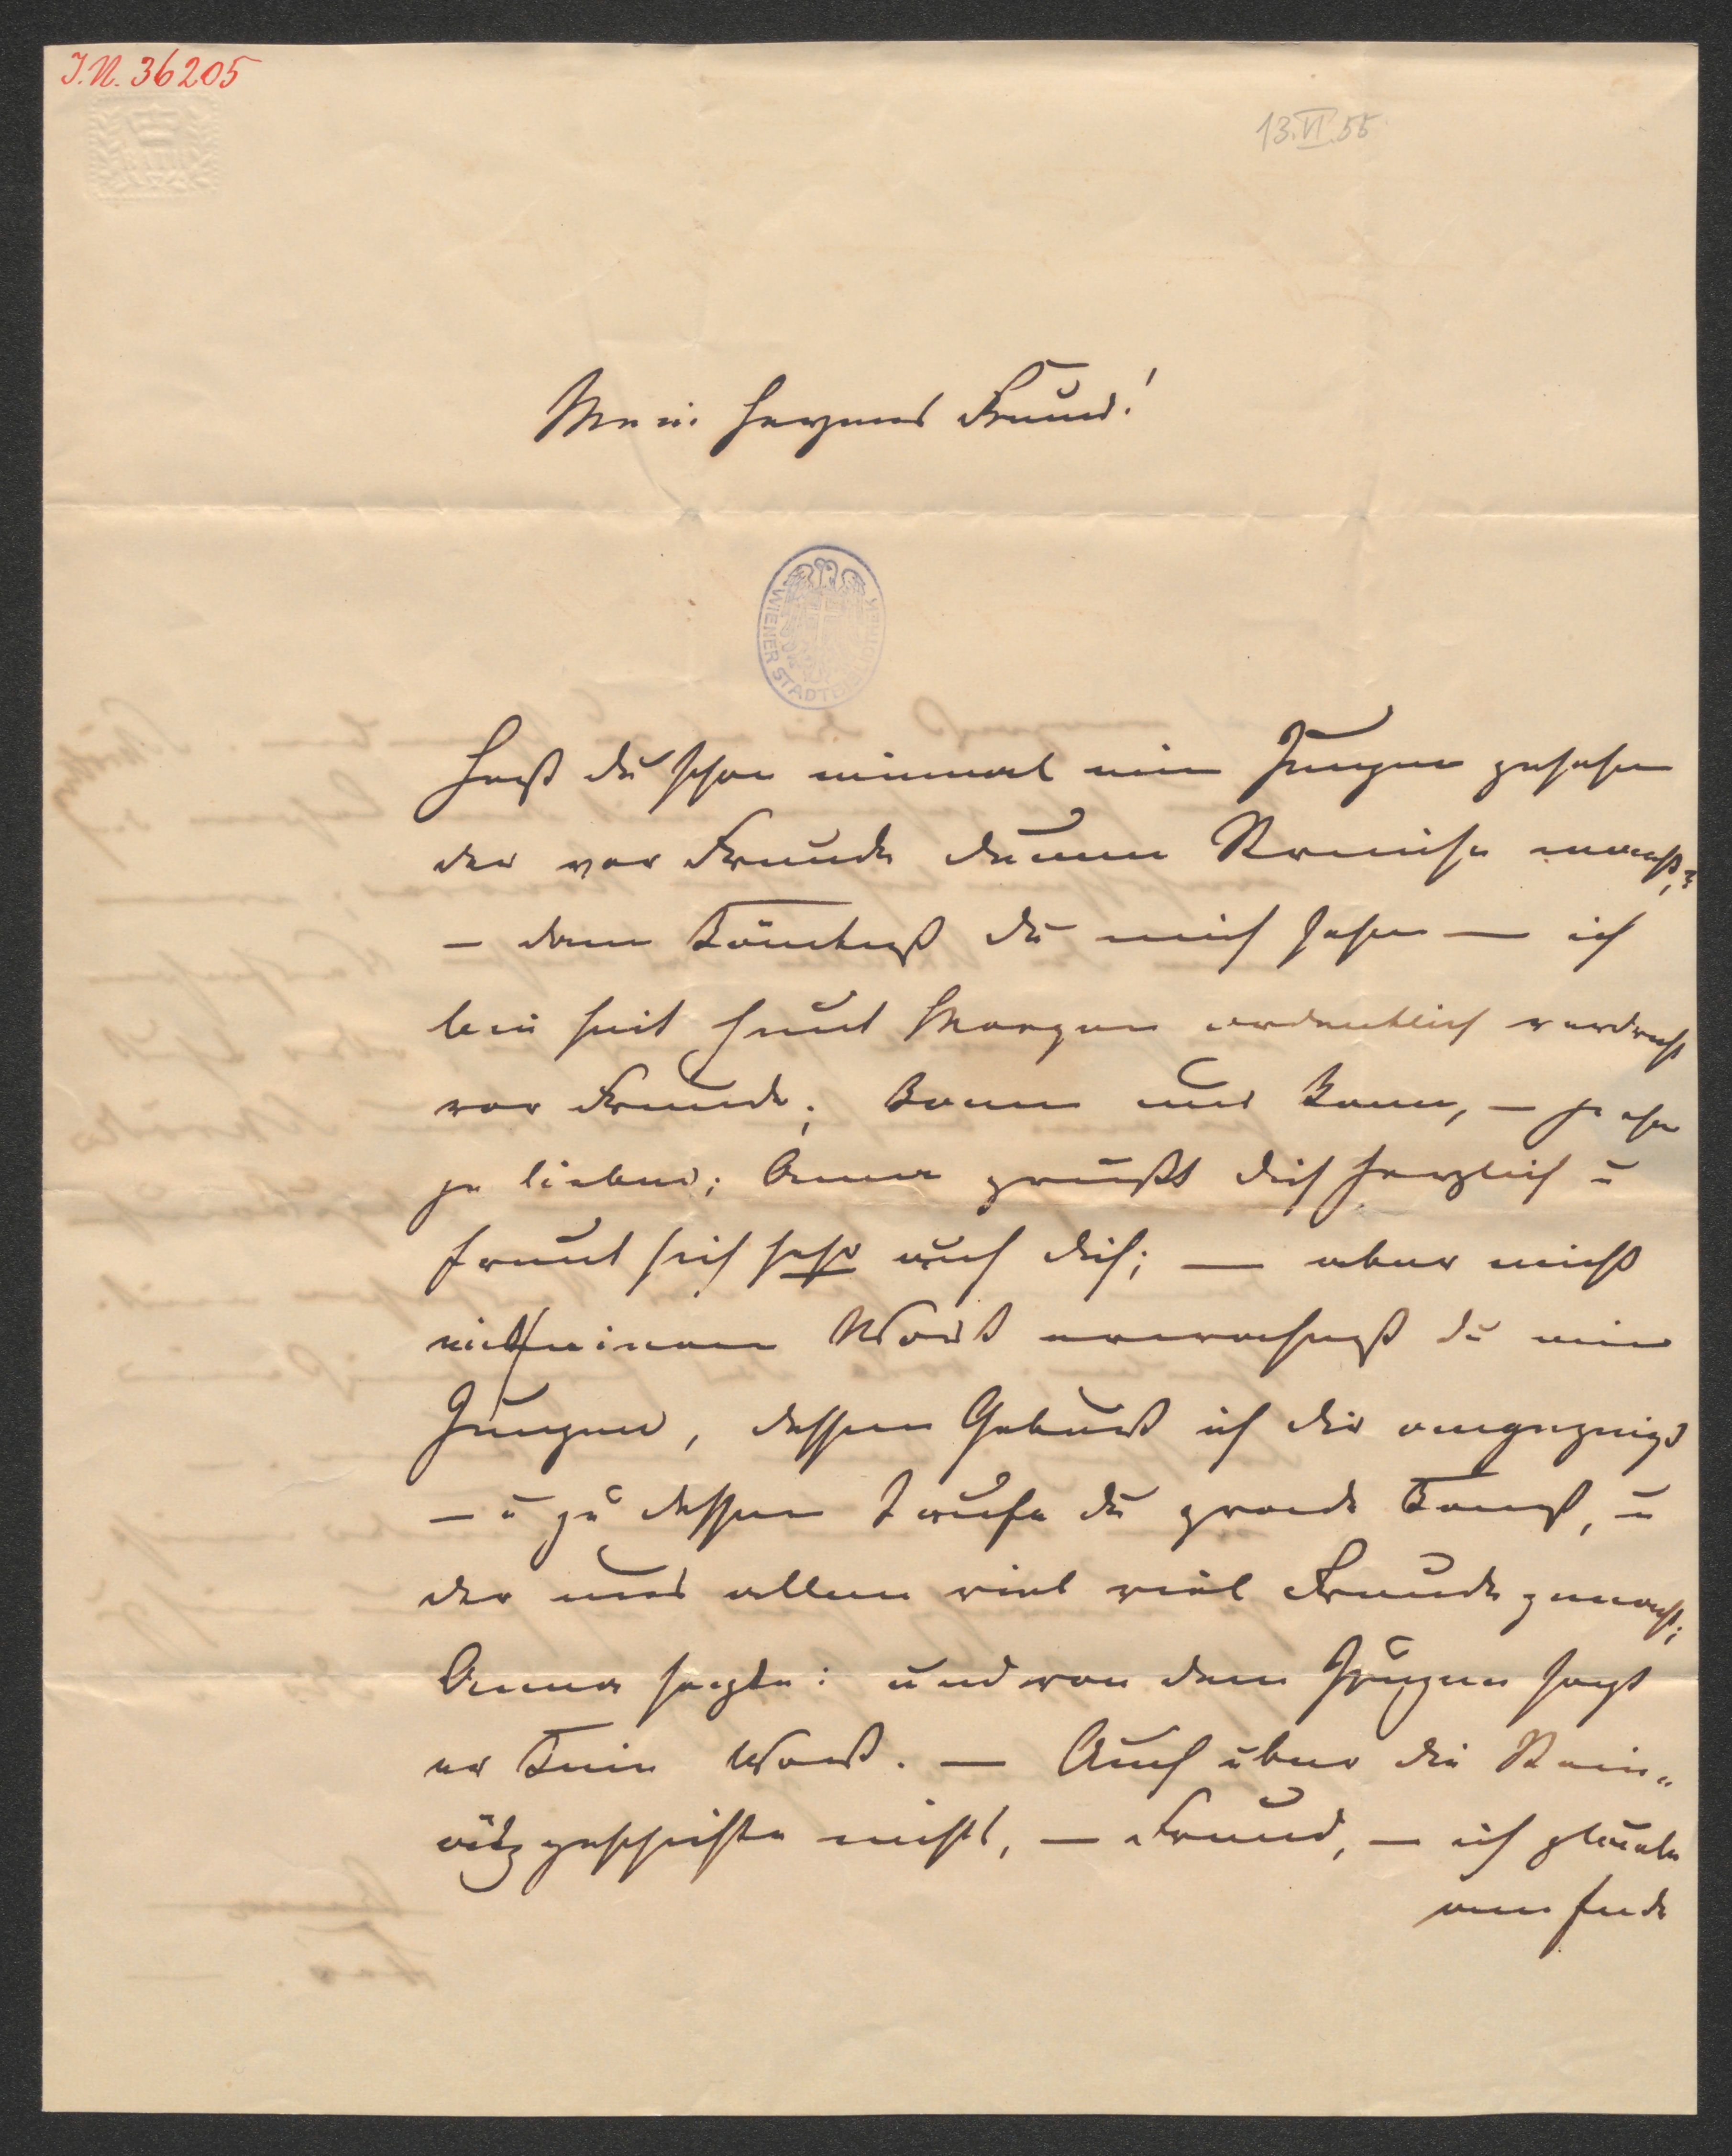 I.N. 36205
13.VI.55
Mein Herzens Freund!
WIENER STADTBIBLIOTHEK
Hast du schon einmal ein Jungen gesehen
der vor Freude dumme Streiche macht,?
– dann könntest du mich sehen — ich
bin seit heut Morgen ordentlich verdreht
vor Freude; komm nur komm, – je eher
je lieber; Anna grüßt dich herzlich u
freut sich sehr auf dich; — aber nicht
mit einem Wort erwaehnst du mein
Jungen, dessen Geburt ich dir angezeigt
– u zu dessen Taufe du grade kamst, u
der uns allen viel viel Freude gemacht;
Anna sagte: und von dem Jungen sagt
er kein Wort. — Auch über die
nichts, – Freund, – ich glaube
am Ende